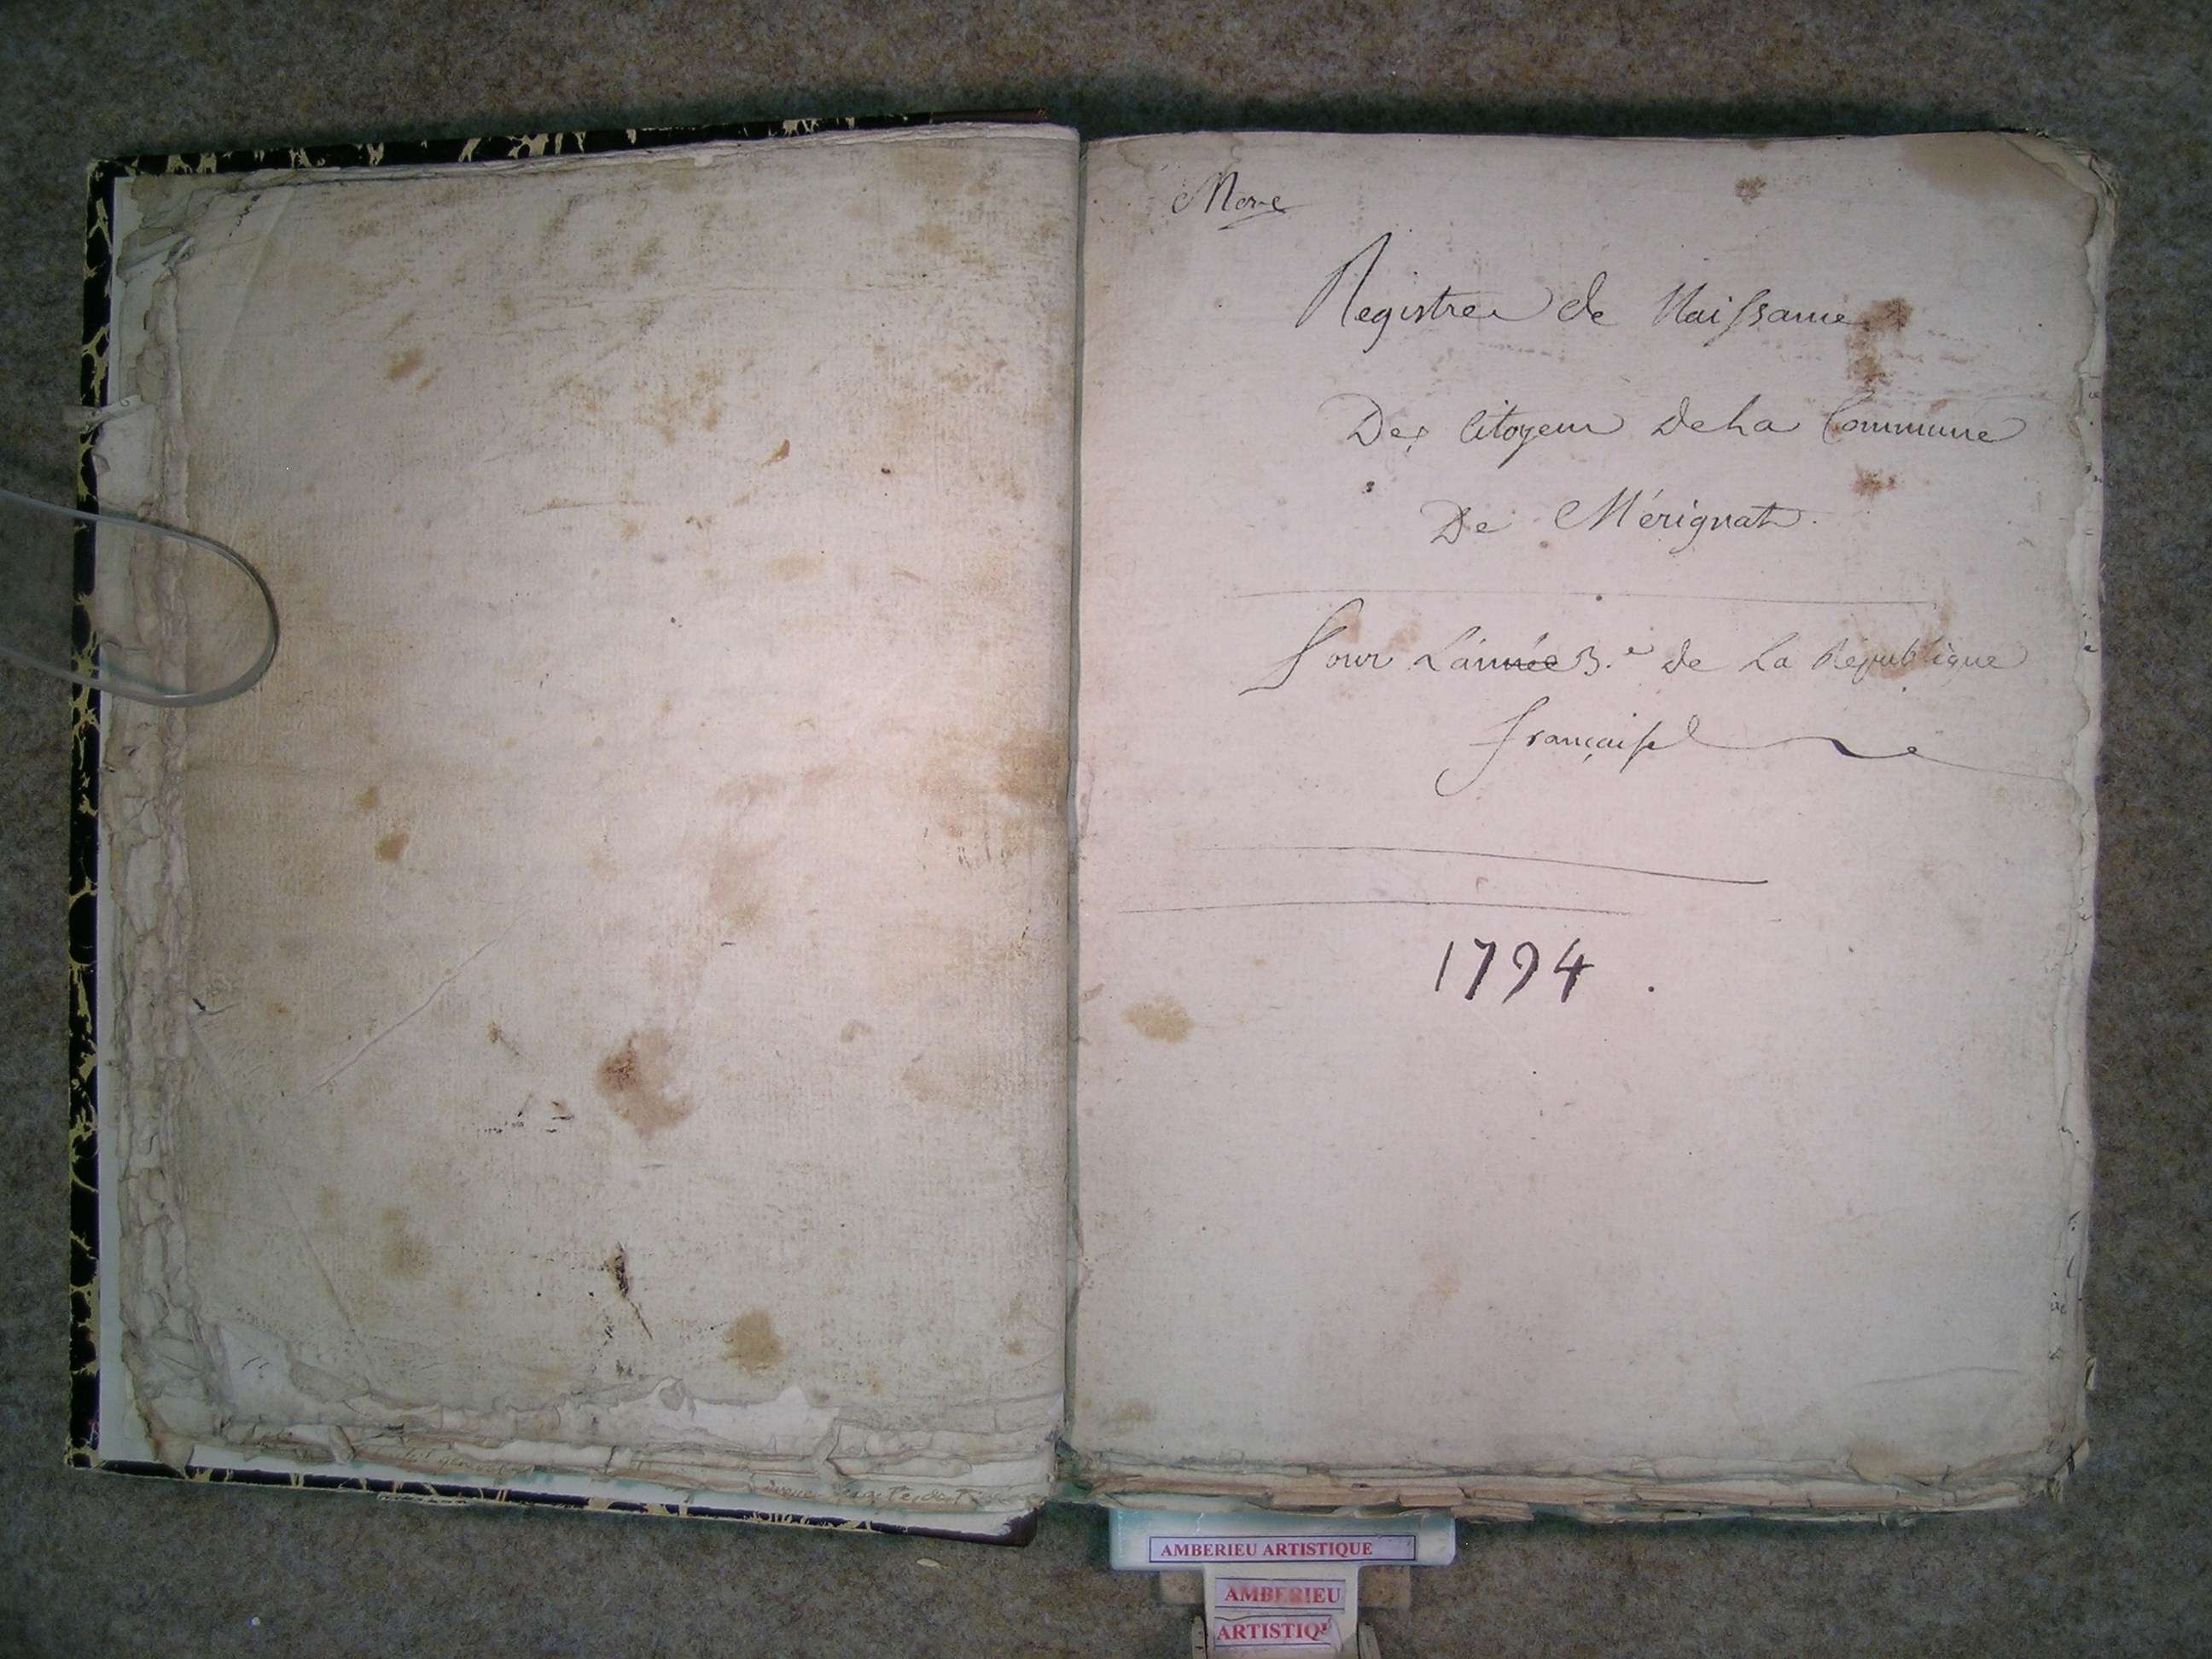 More
Registre de Naissance
Des Citoyens de La Commune
De Mérignat.
Pour L'année 3.e de La République
française
1794.
AMBERIEU ARTISTIQUE
AMBERIEU
ARTISTIQ